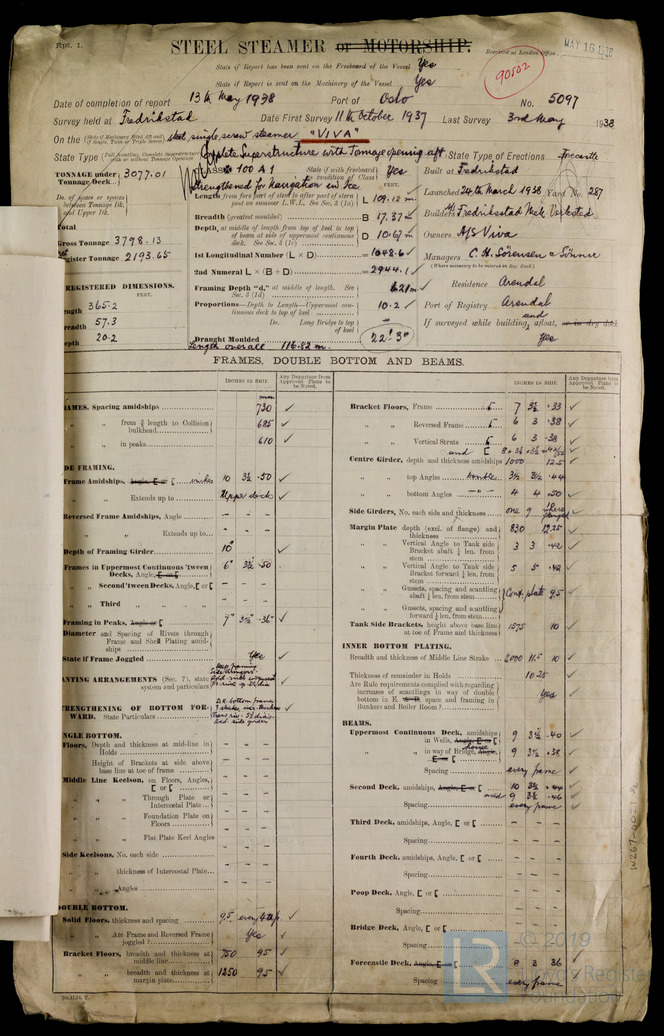 Rpt. 1.
STEEL STEAMER or MOTORSHIP.
Received at London Office
MAY 16 1938
90502
State if Report has been sent on the Freeboard of the Vessel Yes
State if Report is sent on the Machinery of the Vessel Yes
Date of completion of report 13th May 1938 Port of Oslo No. 5097
Survey held at Fredrikstad Date First Survey 11th October 1937 Last Survey 3rd May 1938
On the steel, single screw steamer "VIVA"
State Type Complete Superstructure with Tonnage opening aft. State Type of Erections Forecastle
TONNAGE under Tonnage Deck 3077.01
CLASS 100 A1 State if (with freeboard) as condition of Class Yes
Strengthened for Navigation in Ice
Built at Fredrikstad
Launched 24th March 1938 Yard No. 287
Builders A/S Fredriksstad Mek. Verksted
Owners A/S Viva
Managers C. H. Sörensen & Sönner
(Where necessary to be entered in Reg. Book)
Residence Arendal
Port of Registry Arendal
If surveyed while building, and afloat, or in dry dock
Yes
No. of space or spaces between Tonnage Dk. and Upper Dk.
Total
Gross Tonnage 3798.13
Register Tonnage 2193.65
REGISTERED DIMENSIONS.
FEET.
Length 365.2
Breadth 57.3
Depth 20.2
FEET.
Length from fore part of stem to after part of stern post on summer L.W.L. See Sec. 3 (1a) L 109.12 m
Breadth (greatest moulded) B 17.37 m
Depth, at middle of length from top of keel to top of beam at side of uppermost continuous deck. See Sec. 3 (1c) D 10.67 m
1st Longitudinal Number (L × D) = 1048.6
2nd Numeral L × (B + D) = 2944.1
Framing Depth "d," at middle of length. See Sec. 3 (1d) 6.21 m
Proportions—Depth to Length—Uppermost continuous deck to top of keel 10.2
Do. Long Bridge to top of keel
Draught Moulded 22' 3"
Length overall 116.82 m.
FRAMES, DOUBLE BOTTOM AND BEAMS.
INCHES IN SHIP.
Any Departure from Approved Plans to be Noted.
FRAMES, Spacing amidships 730
" " from ⅗ length to Collision bulkhead 685
" " in peaks 610
SIDE FRAMING.
Frame Amidships, Angle, E or [ 10 3½ .50
" " Extends up to Upper deck
Reversed Frame Amidships, Angle - - -
" " Extends up to - - -
Depth of Framing Girder 10"
Frames in Uppermost Continuous 'tween Decks, Angle, E or [ 6" 3½ .50
" Second 'tween Decks, Angle, [ or [ - - -
" Third " " " " - - -
Framing in Peaks, Angle or [ 7" 3½" .36"
Diameter and Spacing of Rivets through Frame and Shell Plating amidships
State if Frame Joggled Yes
PANTING ARRANGEMENTS (Sec. 7), state system and particulars
STRENGTHENING OF BOTTOM FORWARD. State Particulars
SINGLE BOTTOM.
Floors, Depth and thickness at mid-line in Holds
Height of Brackets at side above base line at toe of frame
Middle Line Keelson, on Floors, Angles, [ or [
" " Through Plate or Intercostal Plate
" " Foundation Plate on Floors
" " Flat Plate Keel Angles
Side Keelsons, No. each side
" " thickness of Intercostal Plate
" " Angles
DOUBLE BOTTOM.
Solid Floors, thickness and spacing 9.5
" " Are Frame and Reversed Frame joggled? Yes
Bracket Floors, breadth and thickness at middle line 750 9.5
" " breadth and thickness at margin plate 1250 9.5
INCHES IN SHIP.
Any Departure from Approved Plans to be Noted.
Bracket Floors, Frame [ 7 3½ .33
" " Reversed Frame [ 6 3 .38
" " Vertical Struts [ 6 3 .38
Centre Girder, depth and thickness amidships 1000 12.5
" " top Angles 3½ 3½ .44
" " bottom Angles 4 4 .50
Side Girders, No. each side and thickness one 9
Margin Plate depth (excl. of flange) and thickness 830 12.25
" " Vertical Angle to Tank side Bracket abaft ¼ len. from stem 3 3 .42
" " Vertical Angle to Tank side Bracket forward ¼ len. from stem 5 5 .42
" " Gussets, spacing and scantling abaft ¼ len. from stem Cont. plate 9.5
" " Gussets, spacing and scantling forward ¼ len. from stem
Tank Side Brackets, height above base line at toe of Frame and thickness 1575 10
INNER BOTTOM PLATING.
Breadth and thickness of Middle Line Strake 2000 11.5 10
Thickness of remainder in Holds 10.25
Are Rule requirements complied with regarding increases of scantlings in way of double bottom in E. & B. space and framing in Bunkers and Boiler Room? Yes
BEAMS.
Uppermost Continuous Deck, amidships in Wells, Angle, E or [ 9 3½ .40
" " in way of Bridge, Angle, E or [ 9 3½ .38
Spacing every frame
Second Deck, amidships, Angle, E or [ 10 3½ .44
and 9 3½ .46
Spacing every frame
Third Deck, amidships, Angle, [ or [ - - -
Spacing
Fourth Deck, amidships, Angle, [ or [ - - -
Spacing
Poop Deck, Angle, [ or [ - - -
Spacing
Bridge Deck, Angle, [ or [ - - -
Spacing
Forecastle Deck, Angle, E or [ 8 3 36
Spacing every frame
W267-0021
LR
© 2019
Lloyd's Register
Foundation